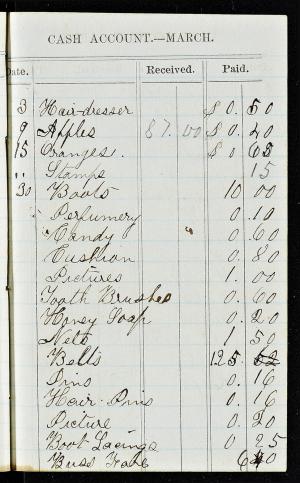 CASH ACCOUNT.—MARCH.
Date. Received. Paid.
3 Hair-dresser $0.50
9 Apples 87.00 $0.20
15 Oranges. $0 65
" Stamps 15
30 Boots 10 00
Perfumery 0.10
Candy 0.60
Cushion 0.80
Pictures 1.00
Tooth Brushes 0.60
Honey Soap 0.20
Nets 1 50
Bells 125.
Pins 0.16
Hair-Pins 0.16
Picture 0.20
Boot Lacings 0 25
Buss